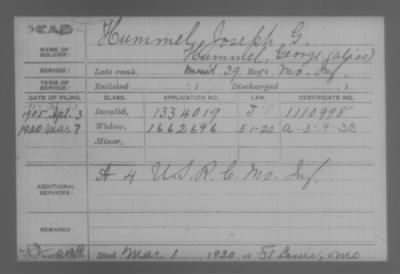 DEAD
Hummel, Joseph G.
NAME OF SOLDIER:
Hummel, George (alias)
SERVICE:
Late rank, 39 Reg't Mo. Inf.
TERM OF SERVICE:
Enlisted , 1 Discharged , 1
DATE OF FILING. CLASS. APPLICATION NO. LAW. CERTIFICATE NO.
1905 Apl. 3 Invalid, 1334019 J 1110998
1920 Mar 7 Widow, 1662696 5-1-20 A-5-9-32
Minor,
ADDITIONAL SERVICES:
A 4 U.S.R.C. Mo. Inf.
REMARKS:
Died Mar. 1, 1920, at St Louis, Mo